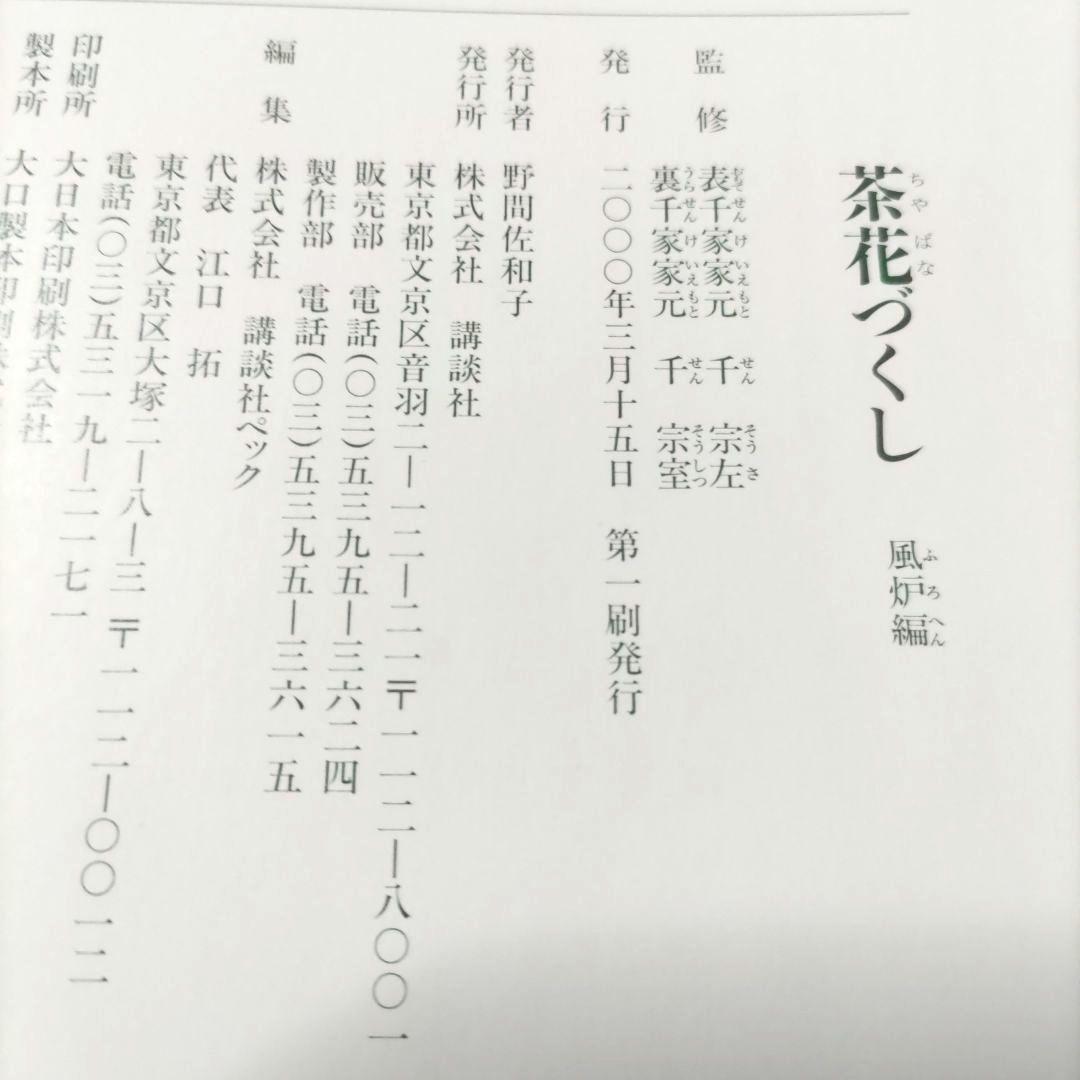 茶花づくし 風炉編
監修 表千家家元 千 宗左
裏千家家元 千 宗室
発行 二〇〇〇年三月十五日 第一刷発行
発行者 野間佐和子
発行所 株式会社 講談社
東京都文京区音羽二―一二―二一 〒一一二―八〇〇一
販売部 電話(〇三)五三九五―三六二四
製作部 電話(〇三)五三九五―三六一五
編集 株式会社 講談社ペック
代表 江口 拓
東京都文京区大塚二―八―三 〒一一二―〇〇一二
電話(〇三)五三一九―二一七一
印刷所 大日本印刷株式会社
製本所 大口製本印刷株